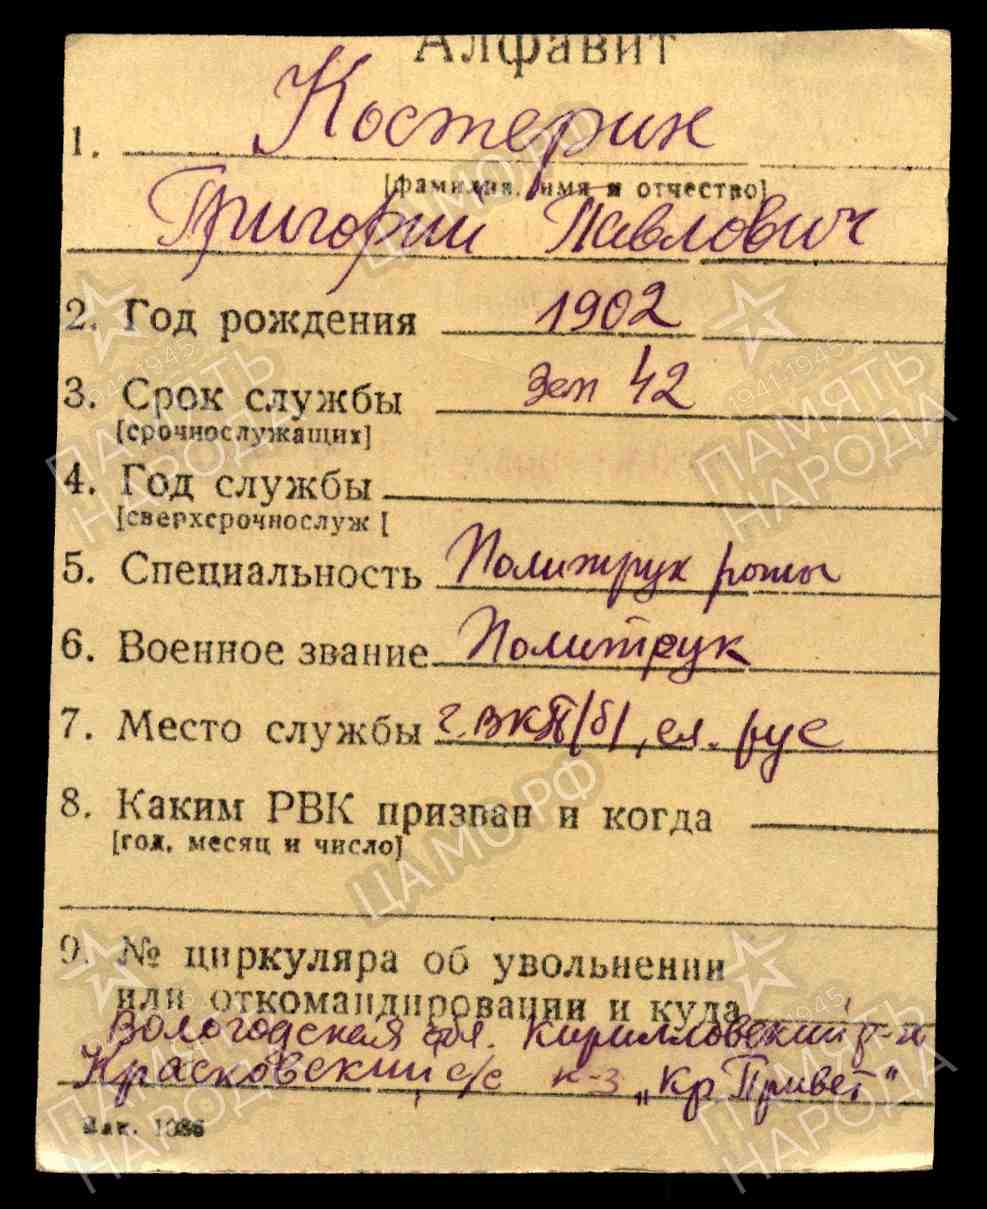 Алфавит
1. Костерин
[фамилия, имя и отчество]
Григорий Павлович
2. Год рождения 1902
3. Срок службы 42
[срочнослужащих]
4. Год службы
[сверхсрочнослуж [
5. Специальность Политрук роты
6. Военное звание Политрук
7. Место службы г. ВКП/б/, сл. рус
8. Каким РВК призван и когда
[год, месяц и число]
9. № циркуляра об увольнении
или откомандировании и куда
Вологодская обл. Кирилловский р-н
Красковский с/с к-з „Кр. Привет"
Зак. 1086
ЦАМО.РФ
1941-1945
ПАМЯТЬ
НАРОДА